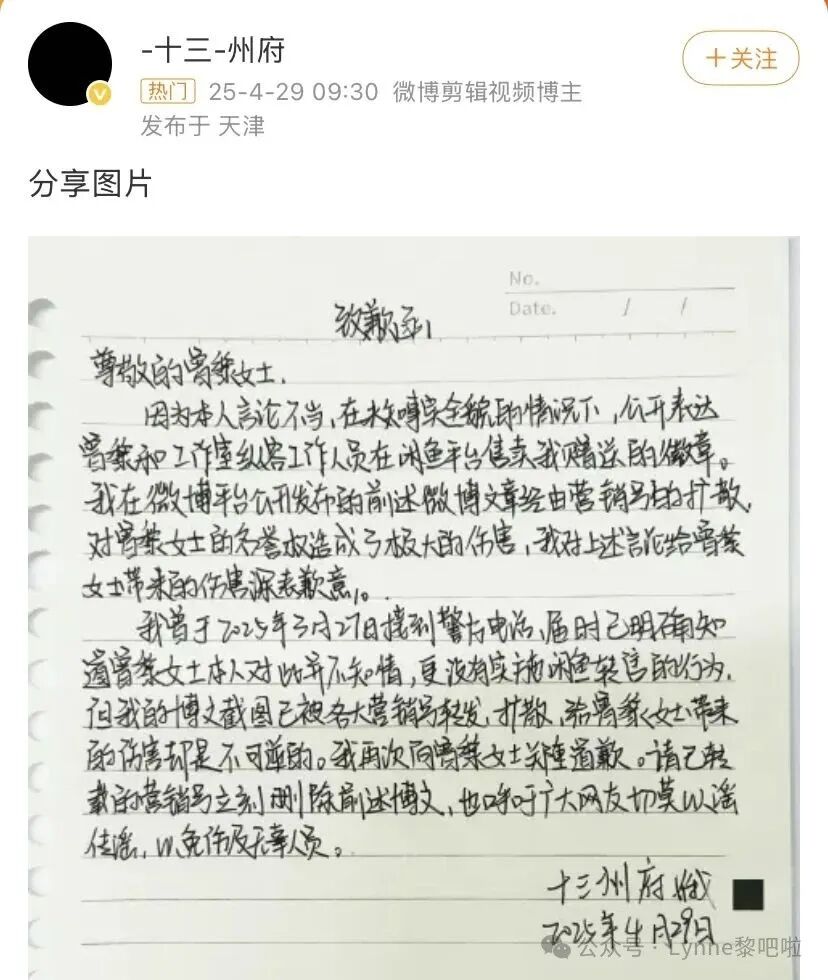 -十三-州府
+关注
热门 25-4-29 09:30 微博剪辑视频博主
发布于 天津
分享图片
No.
Date. / /
致歉函
尊敬的曾黎女士.
因为本人言论不当,在未知晓全貌的情况下,公开表达
曾黎和工作室纵容工作人员在闲鱼平台售卖我赠送的徽章。
我在微博平台公开发布的前述微博文章经由营销号的扩散,
对曾黎女士的名誉权造成了极大的伤害,我对上述言论给曾黎
女士带来的伤害深表歉意。
我曾于2025年3月27日接到警方电话,届时已明确知
道曾黎女士本人对此并不知情,更没有实施闲鱼转售的行为,
但我的博文截图已被各大营销号转发,扩散,给曾黎女士带来
的伤害却是不可逆的。我再次向曾黎女士郑重道歉。请已转
载的营销号立刻删除前述博文,也呼吁广大网友切莫以谣
传谣,以免伤及无辜人员。
十三州府
2025年4月29日
公众号·Lynne黎吧啦